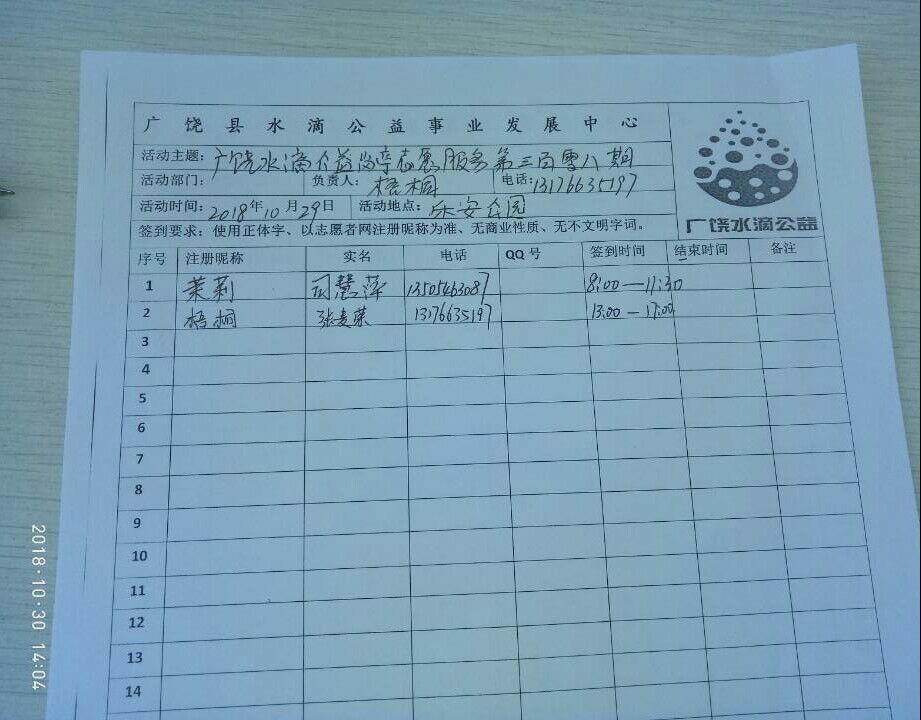 广饶县水滴公益事业发展中心
活动主题：广饶水滴公益岗亭志愿服务第三百零八期
活动部门： 负责人：梧桐 电话：13176635197
活动时间：2018年10月29日 活动地点：乐安公园
签到要求：使用正体字、以志愿者网注册昵称为准、无商业性质、无不文明字词。
广饶水滴公益
序号 注册昵称 实名 电话 QQ号 签到时间 结束时间 备注
1 茉莉 司慧萍 13505463087 8:00—11:30
2 梧桐 张麦荣 13176635197 13:00—17:00
3
4
5
6
7
8
9
10
11
12
13
14
2018·10·30 14:04